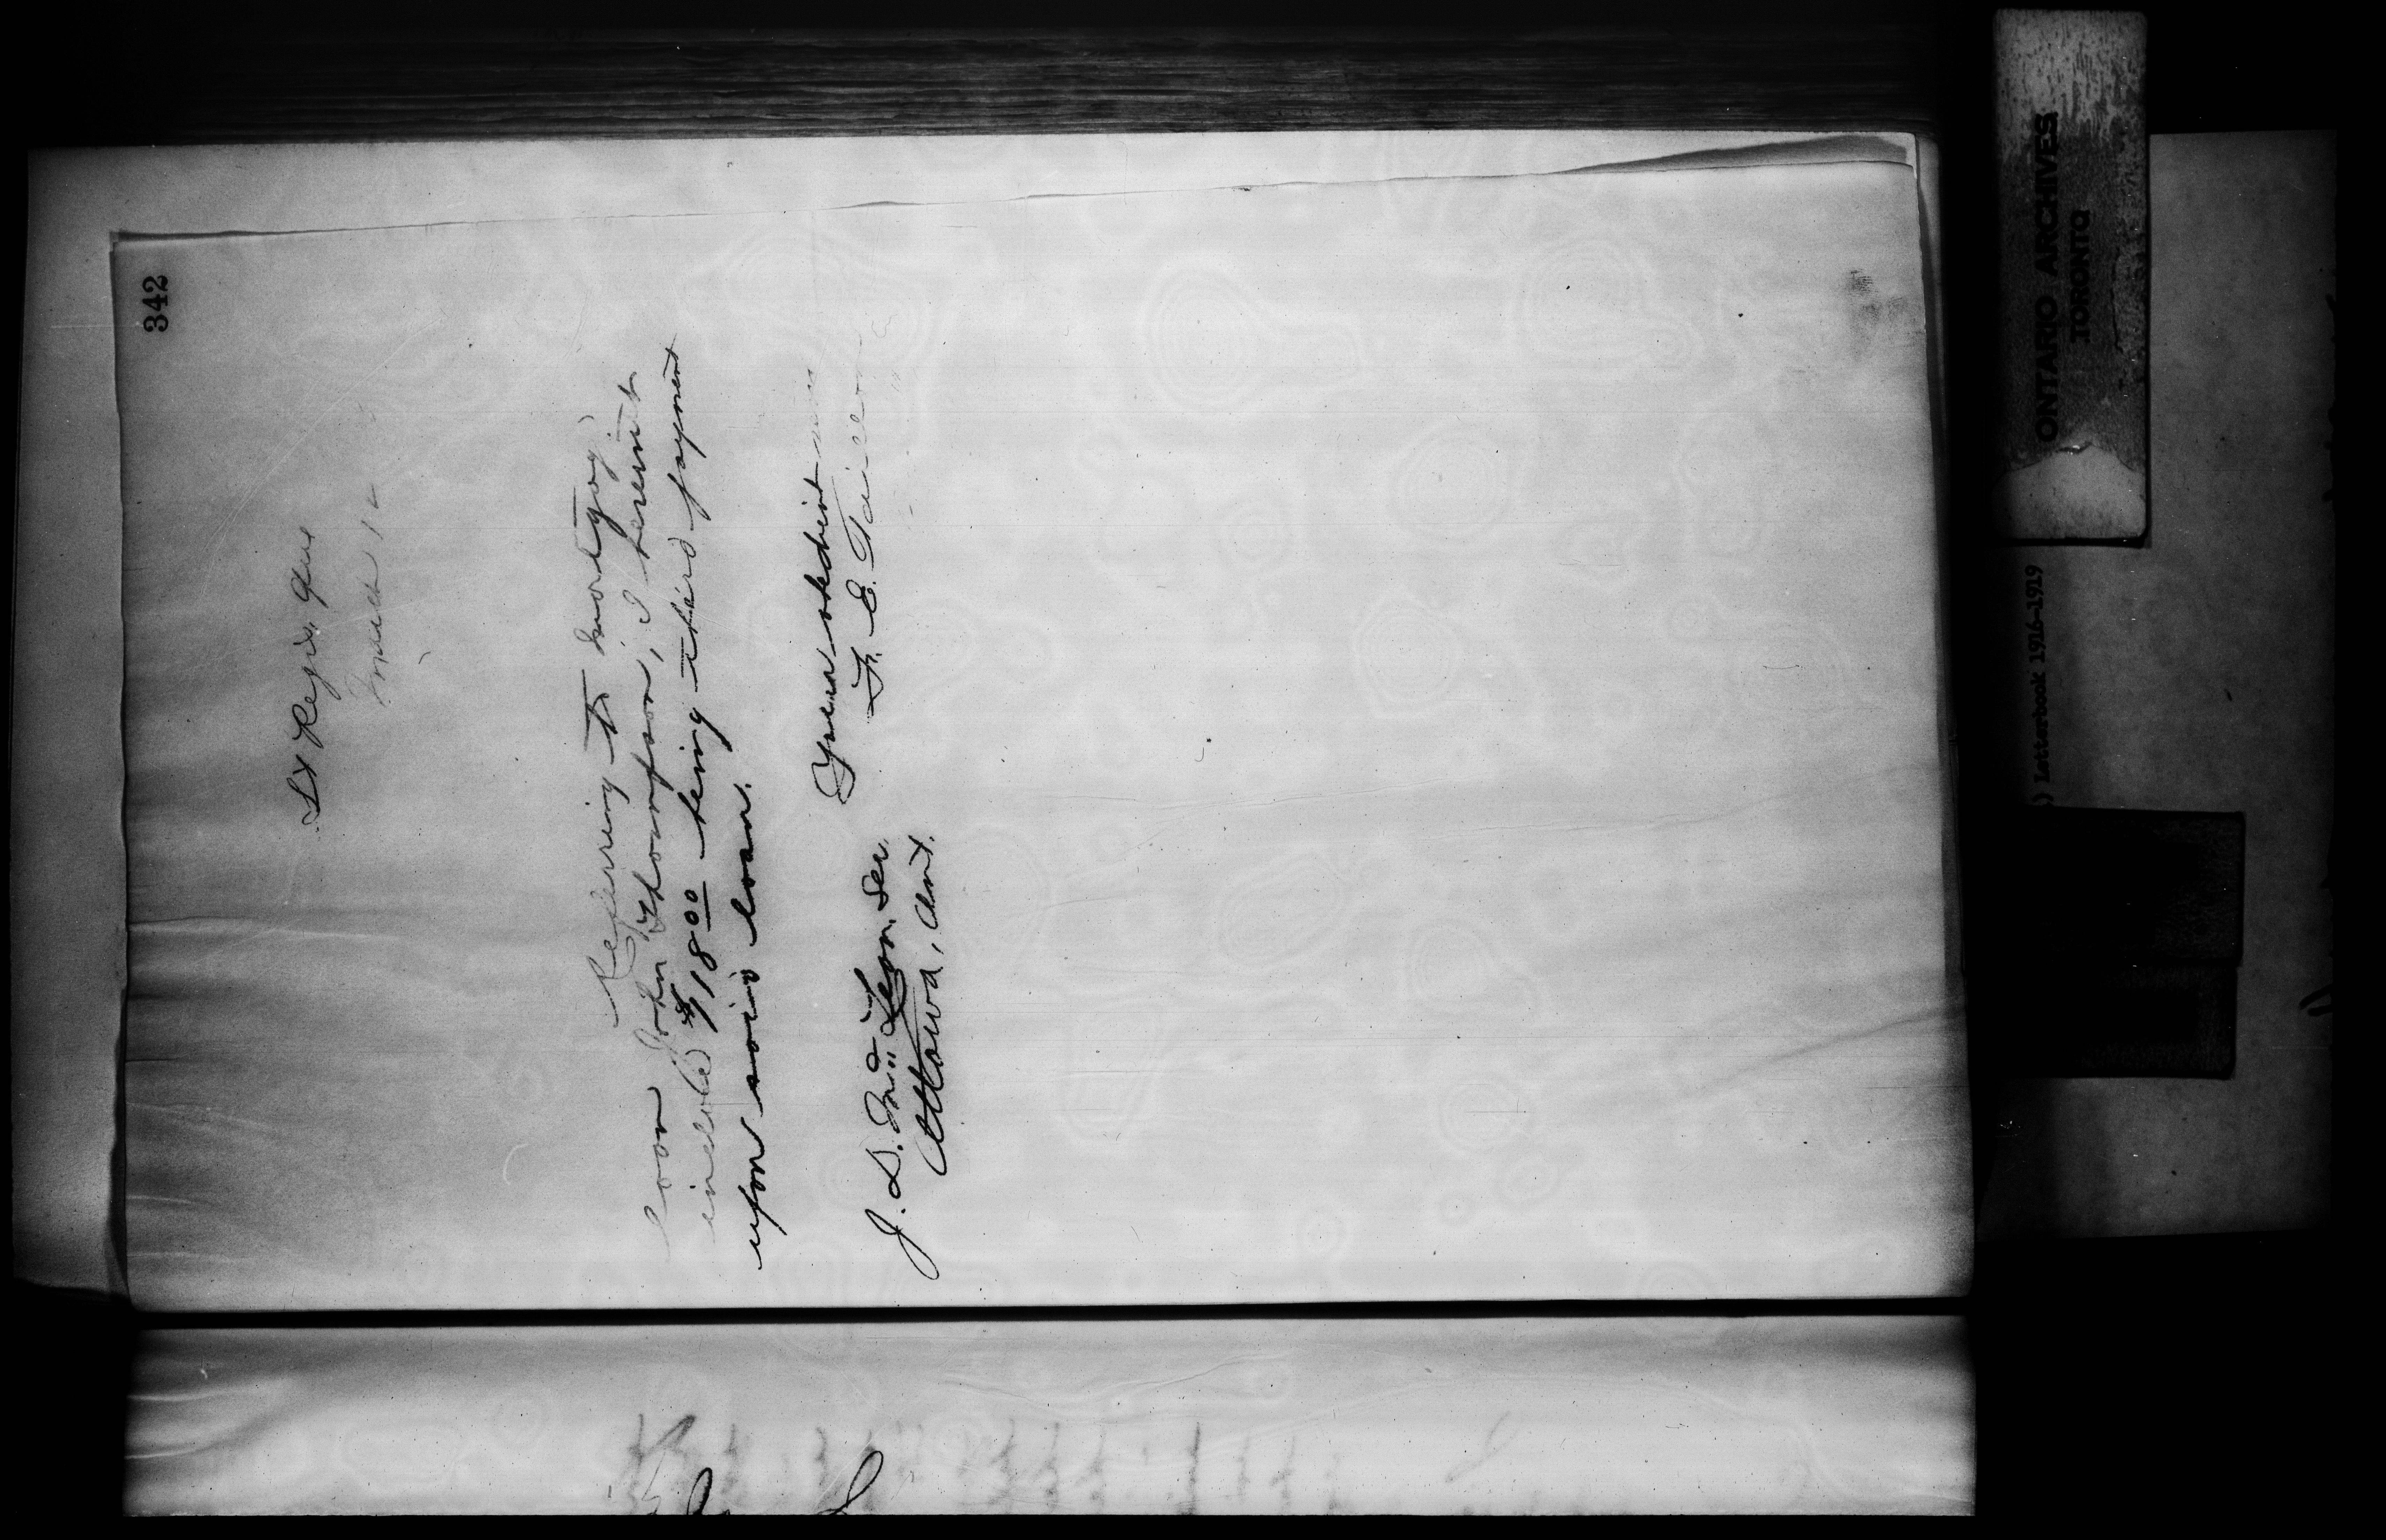 342
St Regis, Que
March 12
Referring to mortgag
loan John Thompson, I herewith
inclose $118 00 being third payment
upon said loan.
Your obedient
F. E. Taillon
J. D. McLean Sec.
Ottawa, Ont.
ONTARIO ARCHIVES
TORONTO
) Letterbook 1916-1919